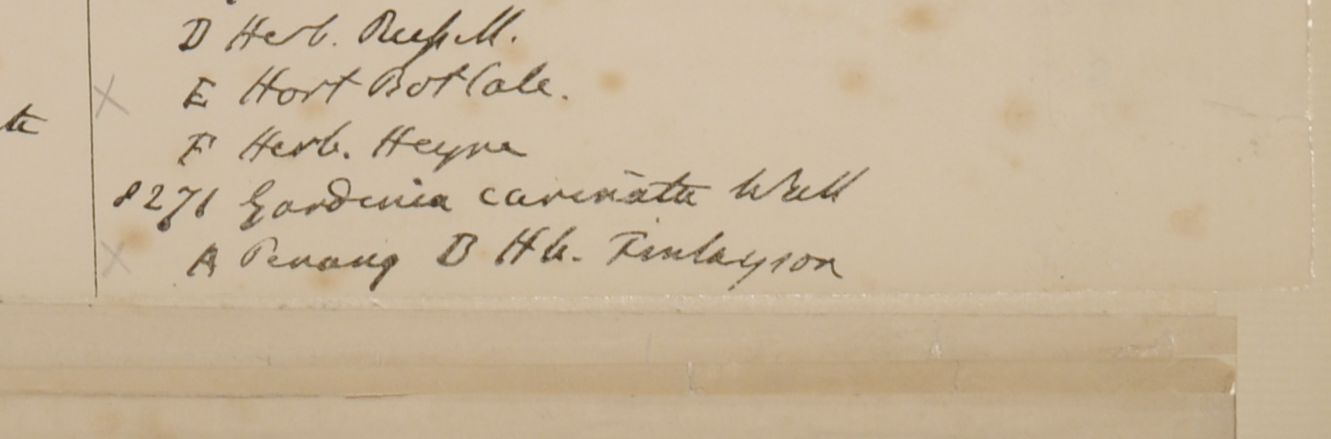 D Herb. Russell.
te
E Hort Bot Calc.
F Herb. Heyne
8271 Gardenia carinata Wall
A Penang B Hb. Finlayson